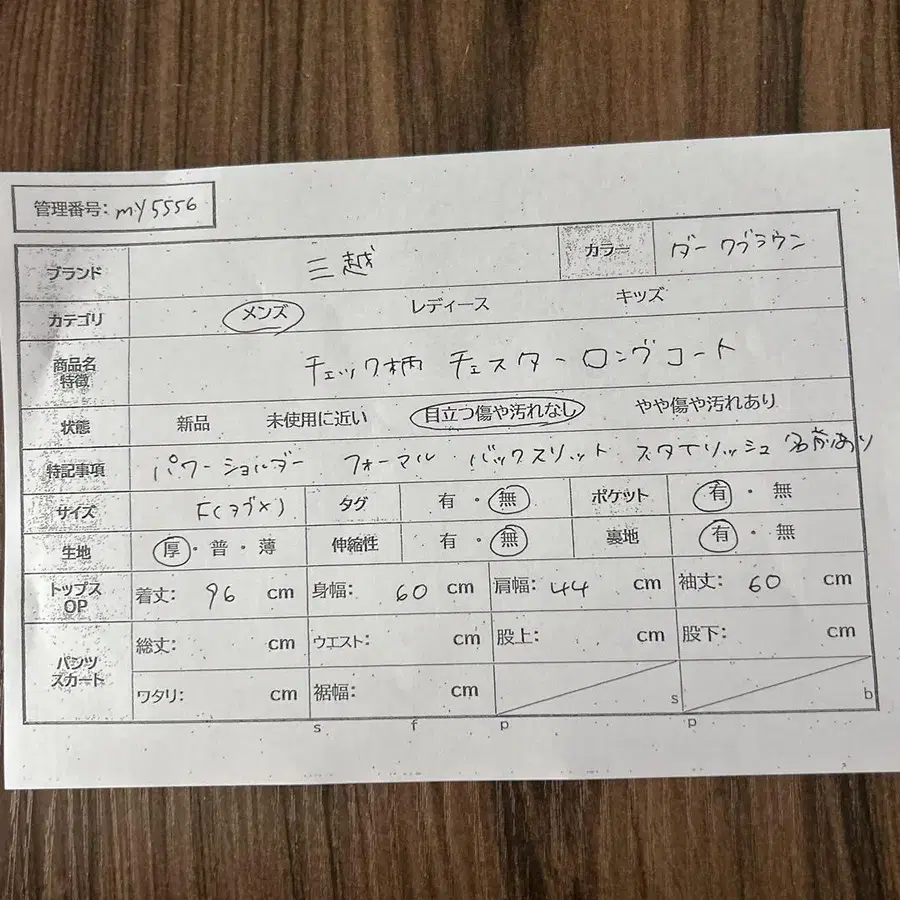 管理番号: my5556
ブランド 三越 カラー ダークブラウン
カテゴリ メンズ レディース キッズ
商品名 特徴 チェック柄 チェスターロングコート
状態 新品 未使用に近い 目立つ傷や汚れなし やや傷や汚れあり
特記事項 パワーショルダー フォーマル バックスリット スタイリッシュ 名前あり
サイズ F(タグ×) タグ 有・無 ポケット 有・無
生地 厚・普・薄 伸縮性 有・無 裏地 有・無
トップス OP 着丈: 96 cm 身幅: 60 cm 肩幅: 44 cm 袖丈: 60 cm
パンツ スカート 総丈: cm ウエスト: cm 股上: cm 股下: cm
ワタリ: cm 裾幅: cm s b
s f p p